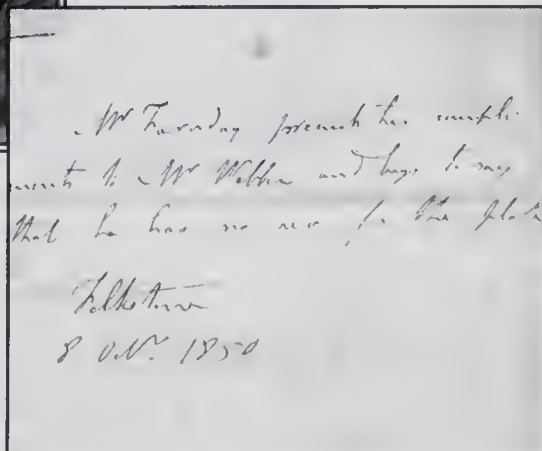 Mr Faraday presents his compli-
ments to Mr and begs to say
that he has no use for the plate
Folkstone
8 Oct. 1850